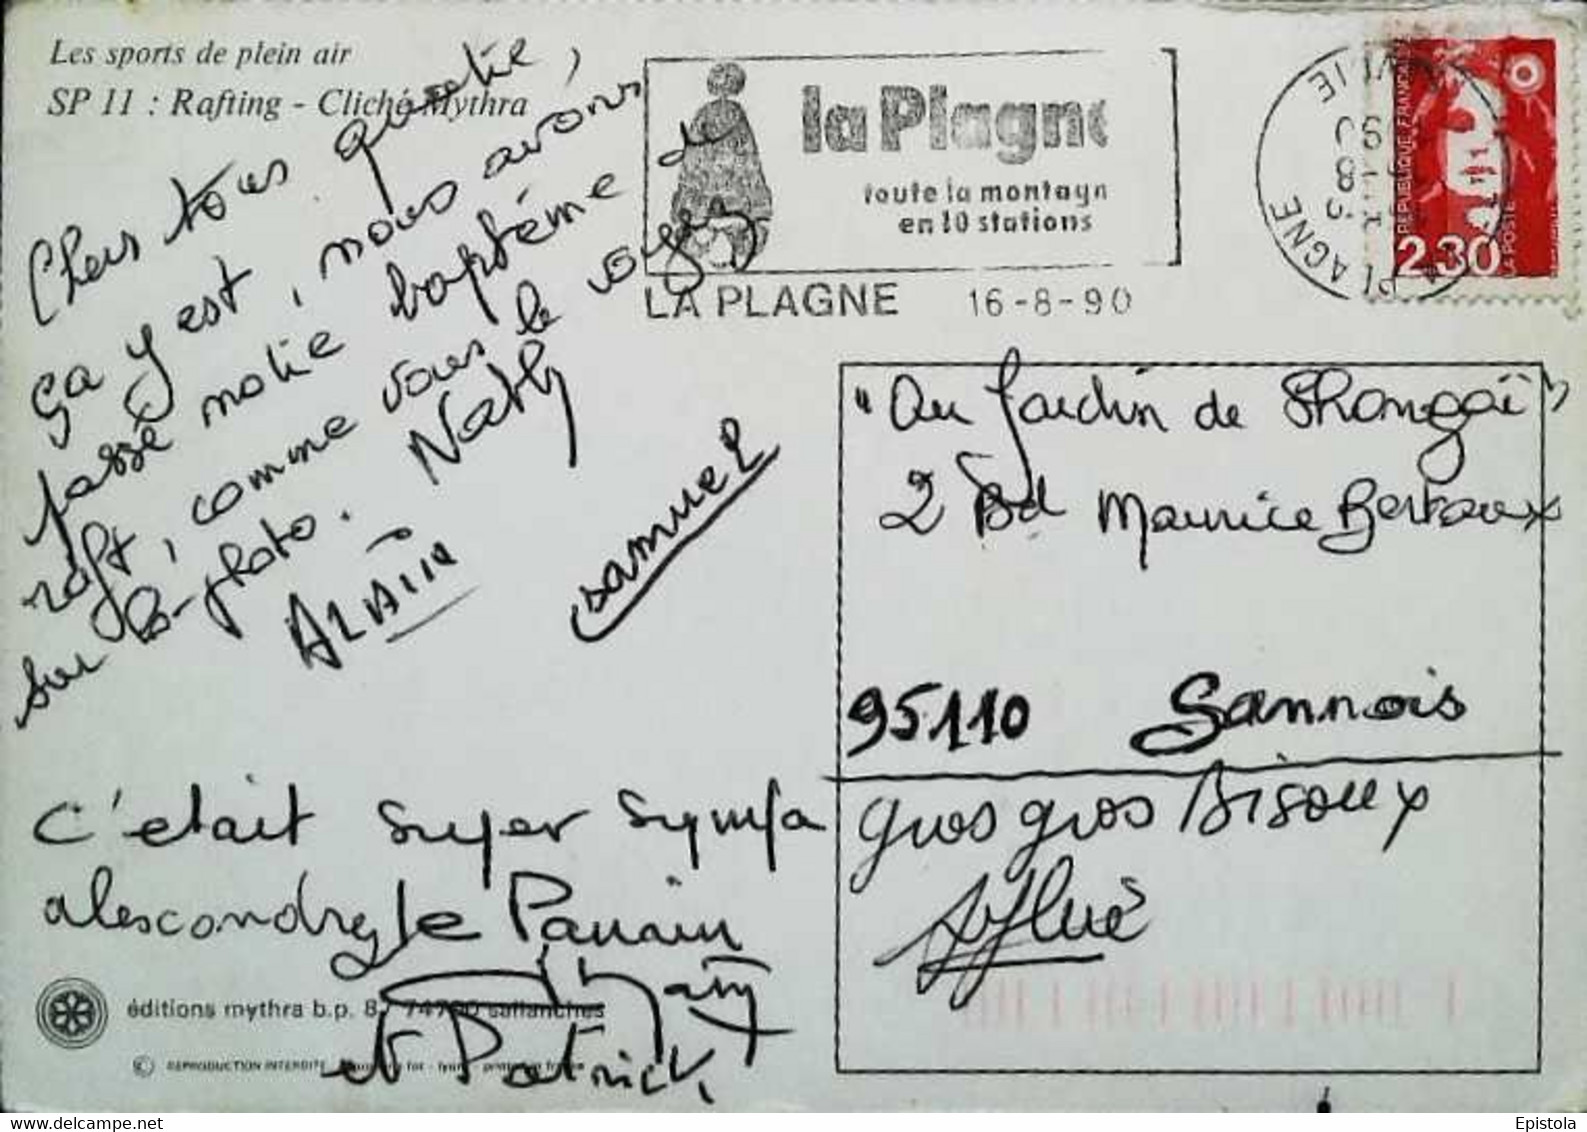 Les sports de plein air
SP 11 : Rafting - Cliché Mythra
Chers tous
ça y est, nous avons
passé notre baptême de
raft, comme vous le voyez
sur la photo. Nathy
ALAIN
Samuel
C'etait super sympa
le Parrain
et Patrick,
éditions mythra b.p. 8 74700 sallanches
© REPRODUCTION INTERDITE
la Plagne
toute la montagn
en 10 stations
LA PLAGNE 16-8-90
LA PLAGNE
SAVOIE
REPUBLIQUE FRANÇAISE
2,30
LA POSTE
"Au Jardin de Shangaï"
2 Bd Maurice Berteaux
95110 Sannois
gros gros Bisoux
Epistola
delcampe.net